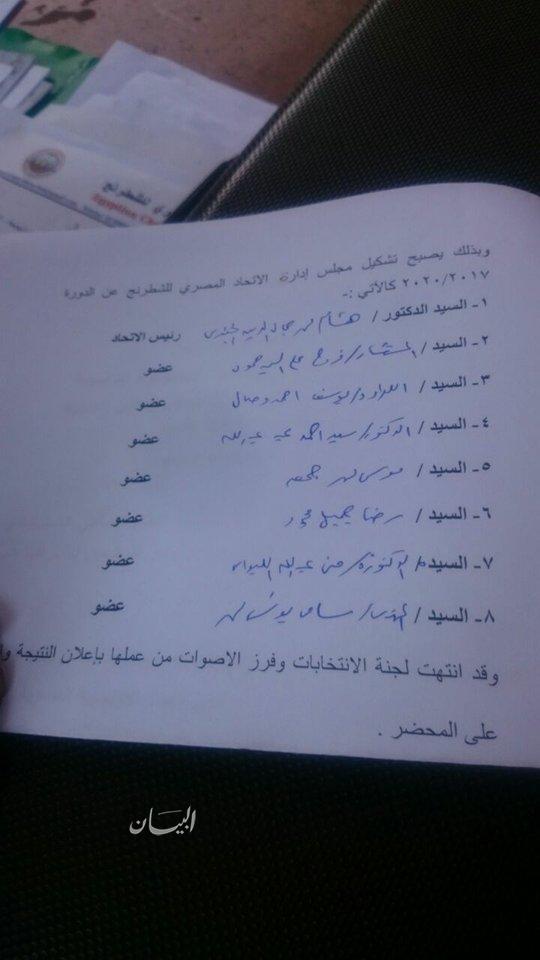 ي للشطرنج
Egyptian Ch
وبذلك يصبح تشكيل مجلس إدارة الاتحاد المصري للشطرنج عن الدورة
٢٠٢٠/٢٠١٧ كالآتي :-
١- السيد الدكتور / هشام رئيس الاتحاد
٢- السيد / المستشار / فرج على السيد عضو
٣- السيد / اللواء د / يوسف احمد وصال عضو
٤- السيد / الدكتور / سيد احمد عبد الله عضو
٥- السيد / موسى جمعه عضو
٦- السيد / رضا جميل عضو
٧- السيد / الدكتورة / عبد الله عضو
٨- السيد / سامى يونس عضو
وقد انتهت لجنة الانتخابات وفرز الاصوات من عملها بإعلان النتيجة
على المحضر .
البيان